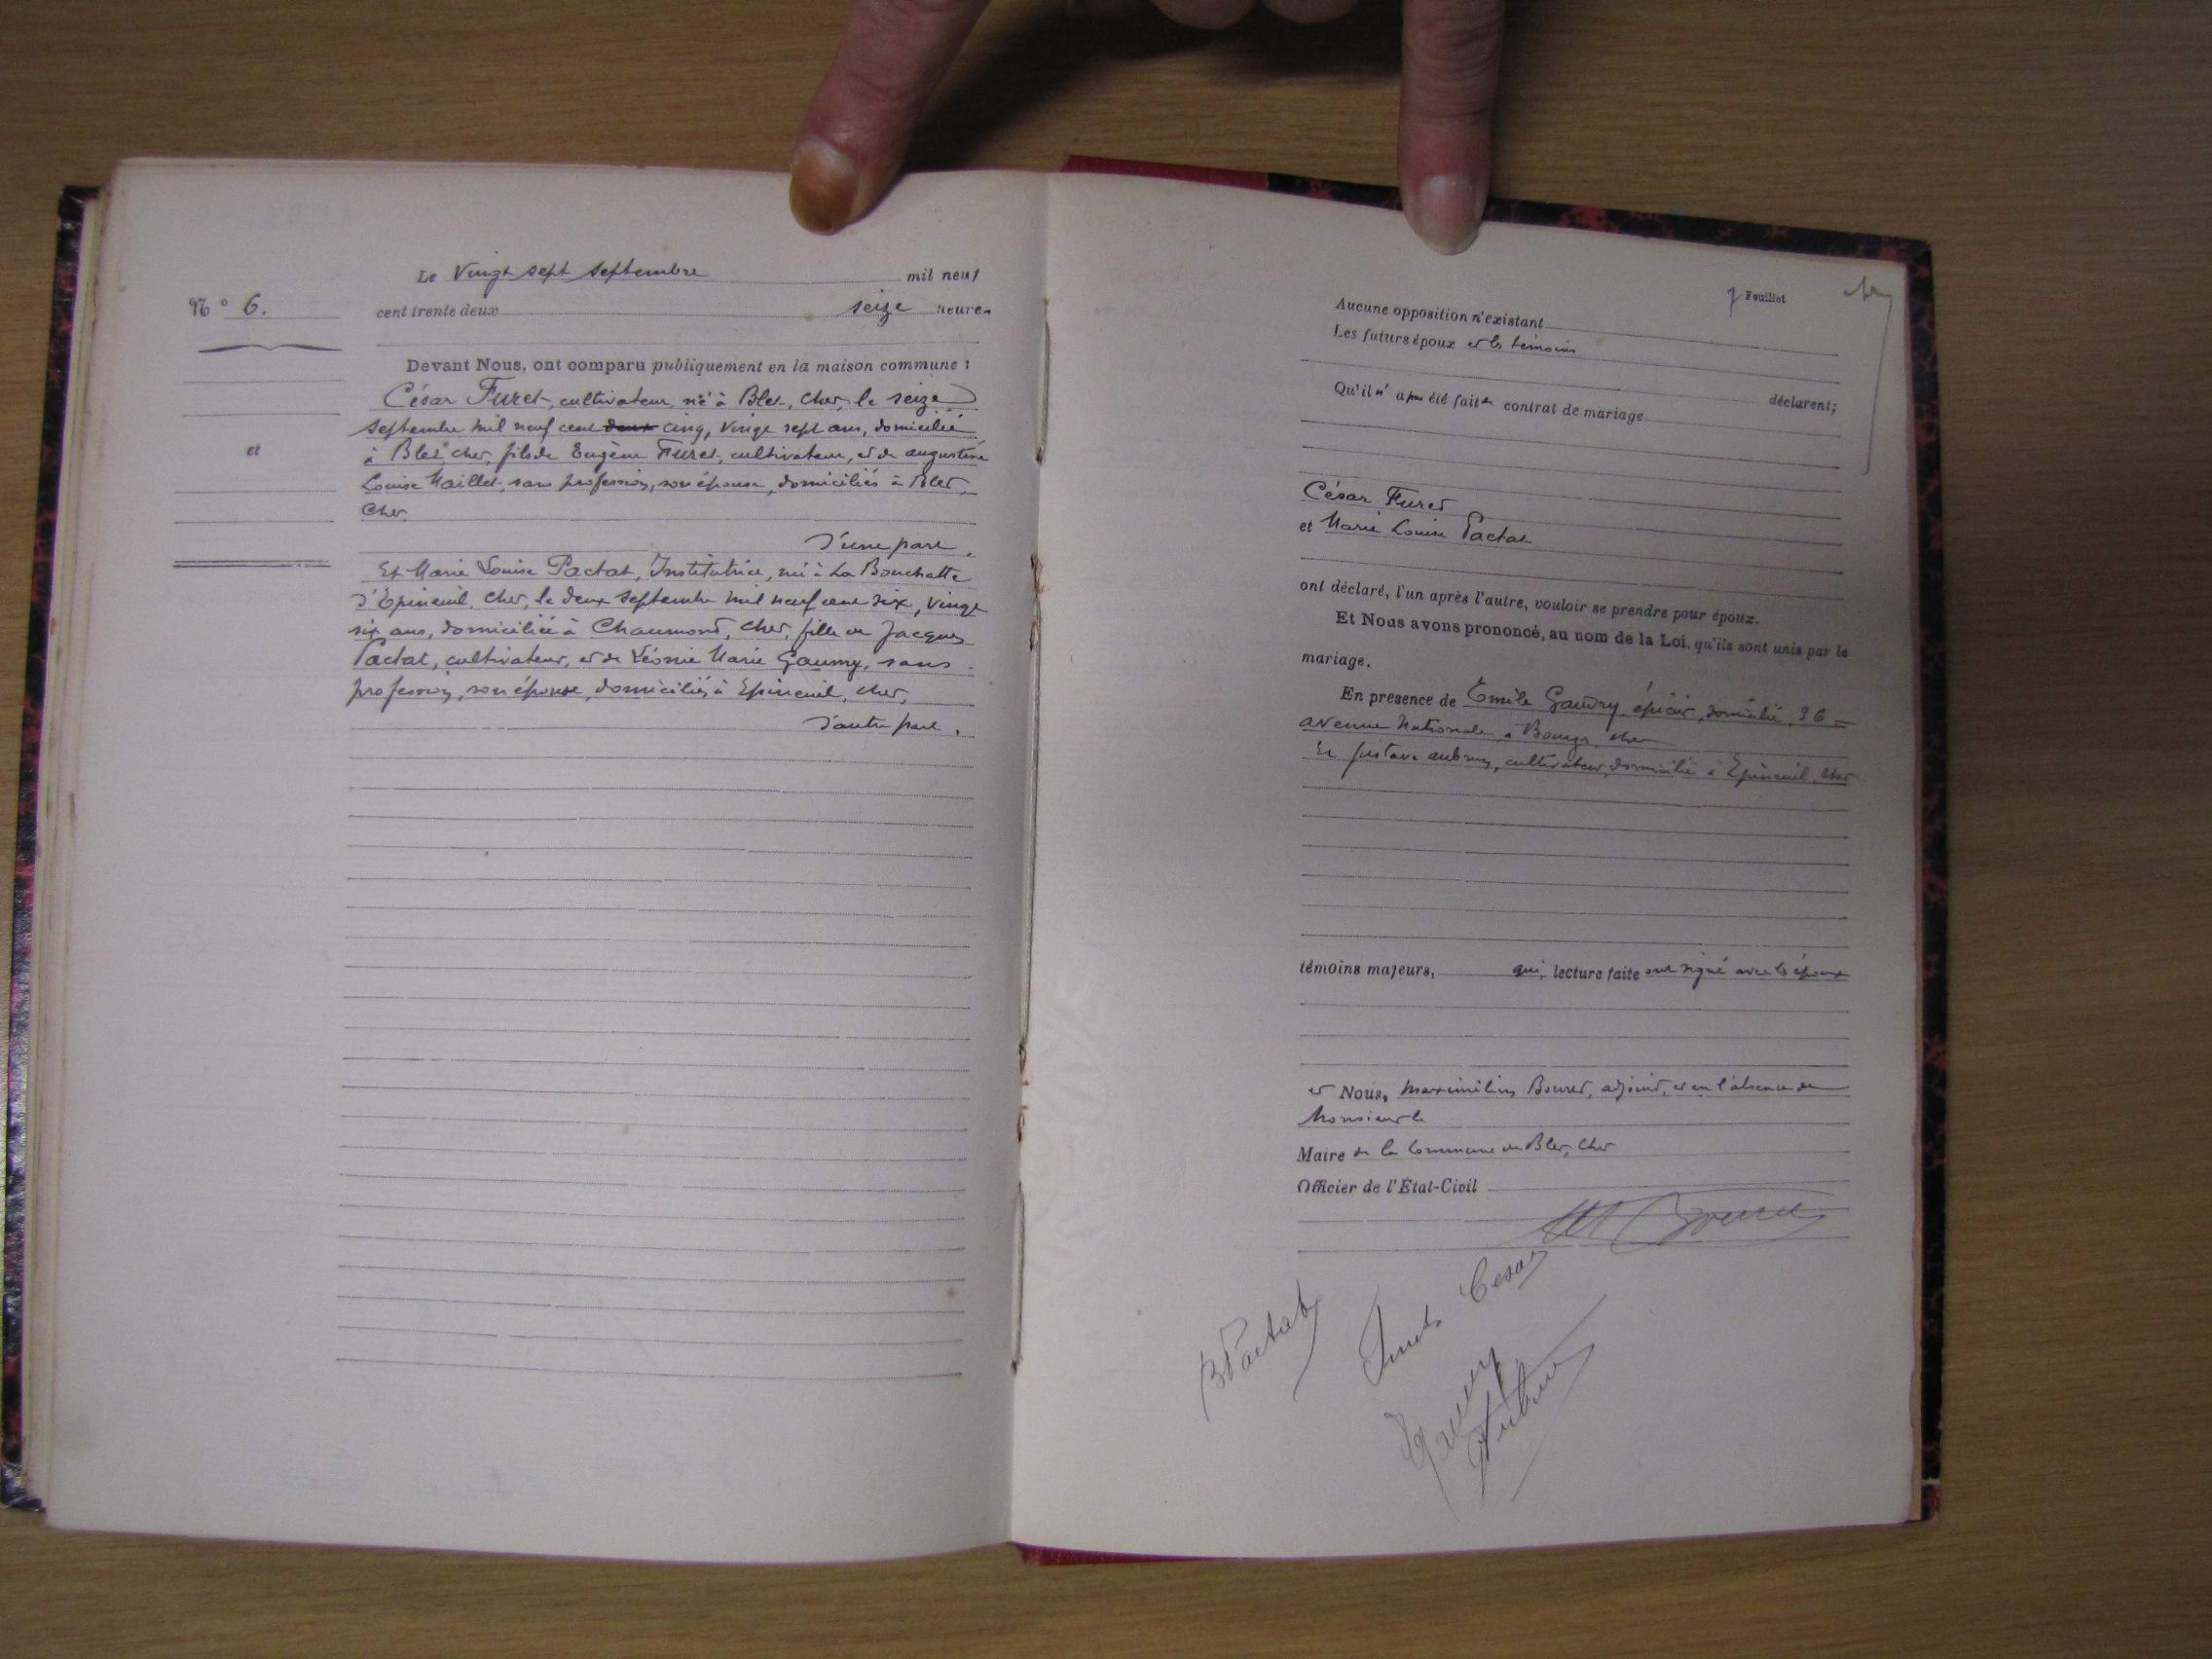 Le Vingt sept septembre mil neuf
N° 6.
cent trente deux seize heures
Devant Nous, ont comparu publiquement en la maison commune :
César Furet, cultivateur, né à Blet, Cher, le seize
septembre mil neuf cent deux cinq, vingt sept ans, domicilié
et
à Blet Cher, fils de Eugène Furet, cultivateur, et de augustine
Louise Maillet, sans profession, son épouse, domiciliés à Blet,
Cher
d'une part,
Et Marie Louise Pactat, Institutrice, né à La Bouchatte
d'Epineuil, Cher, le deux septembre mil neuf cent six, vingt
six ans, domiciliée à Chaumont, Cher, fille de Jacques
Pactat, cultivateur, et de Léonie Marie Gaumy, sans
profession, son épouse, domiciliés à Epineuil, Cher,
d'autre part,
7 Feuillet
Aucune opposition n'existant
Les futurs époux et les témoins
déclarent;
Qu'il n'a pas été fait de contrat de mariage
César Furet
et Marie Louise Pactat
ont déclaré, l'un après l'autre, vouloir se prendre pour époux.
Et Nous avons prononcé, au nom de la Loi, qu'ils sont unis par le
mariage.
En présence de Emile Gaudry, épicier, domicilié, 36
avenue Nationale, à Bourges, Cher
Et Gustave aubrun, cultivateur, domicilié à Epineuil, Cher
témoins majeurs, qui, lecture faite ont signé avec les époux
et Nous, Maximilien Bouret, adjoint, et en l'absence de
Monsieur le
Maire de la Commune de Blet, Cher
Officier de l'État-Civil
M Bouret
Pactat
Furet César
Aubrun